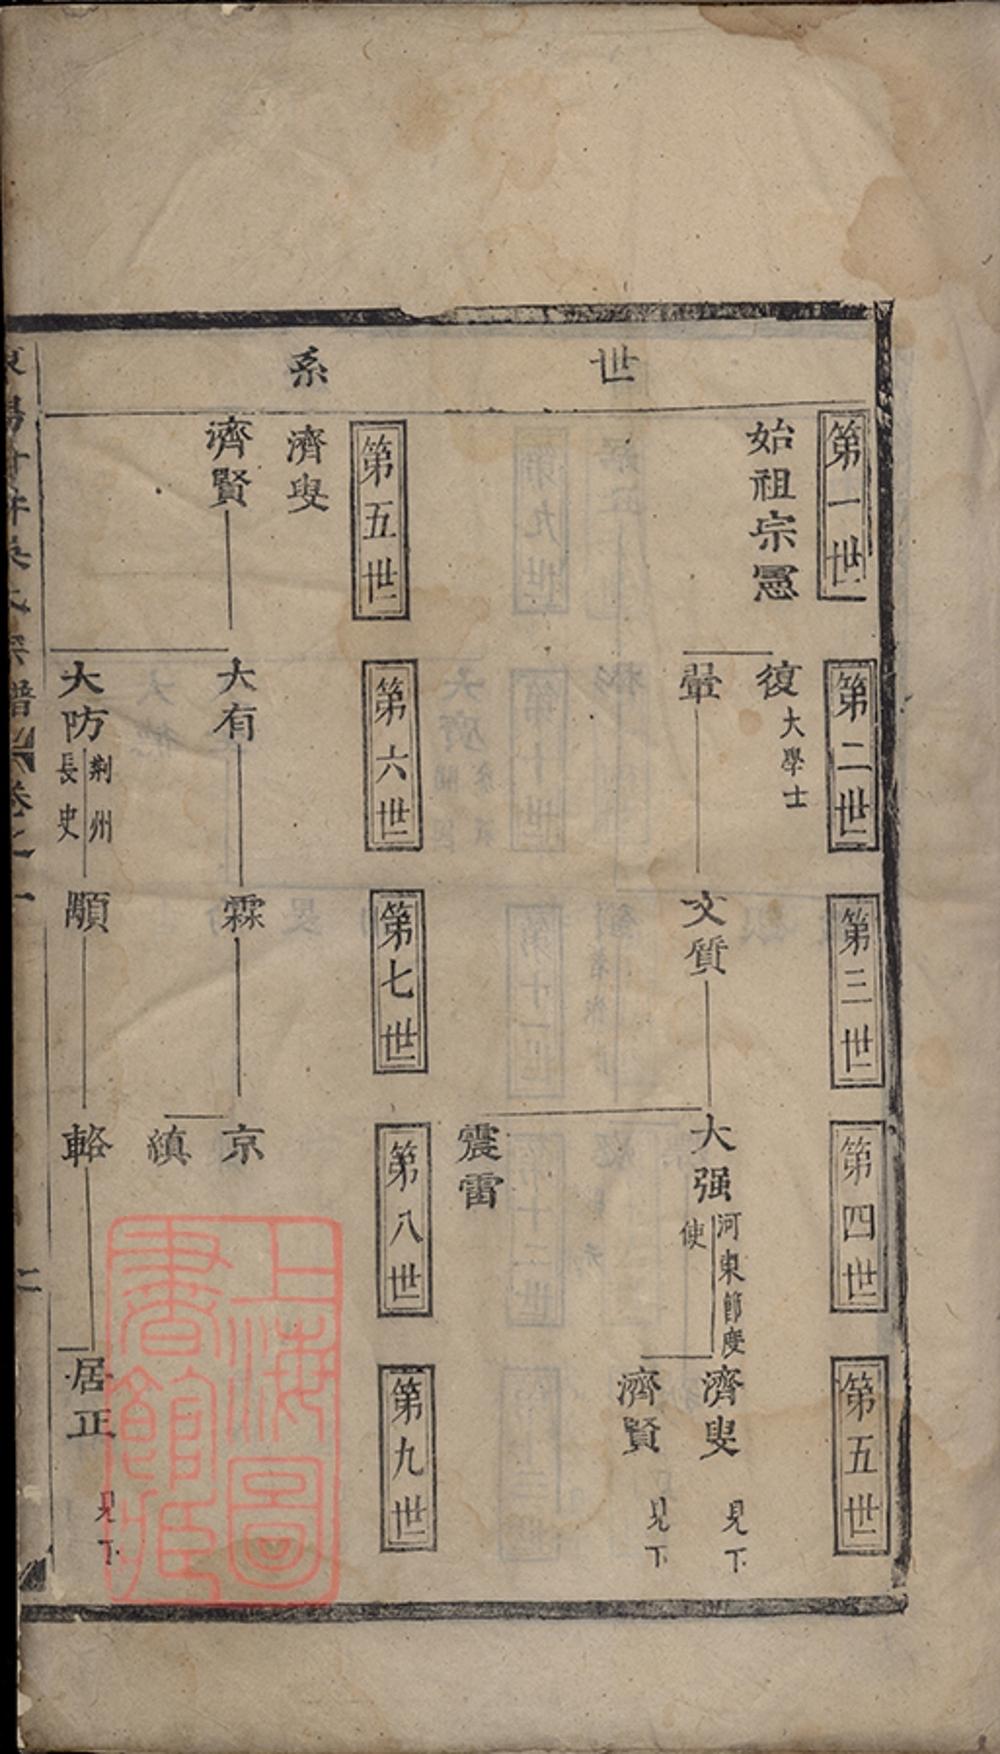 世系
第一世
第二世
第三世
第四世
第五世
始祖宗憲
復 大學士
翬
文質
大强 河東節度使
震雷
濟叟 見下
濟賢 見下
第五世
第六世
第七世
第八世
第九世
濟叟
濟賢
大有
霖
京
縝
大防 荆州長史
顒
輅
居正 見下
卷之一
二
上海圖書館藏